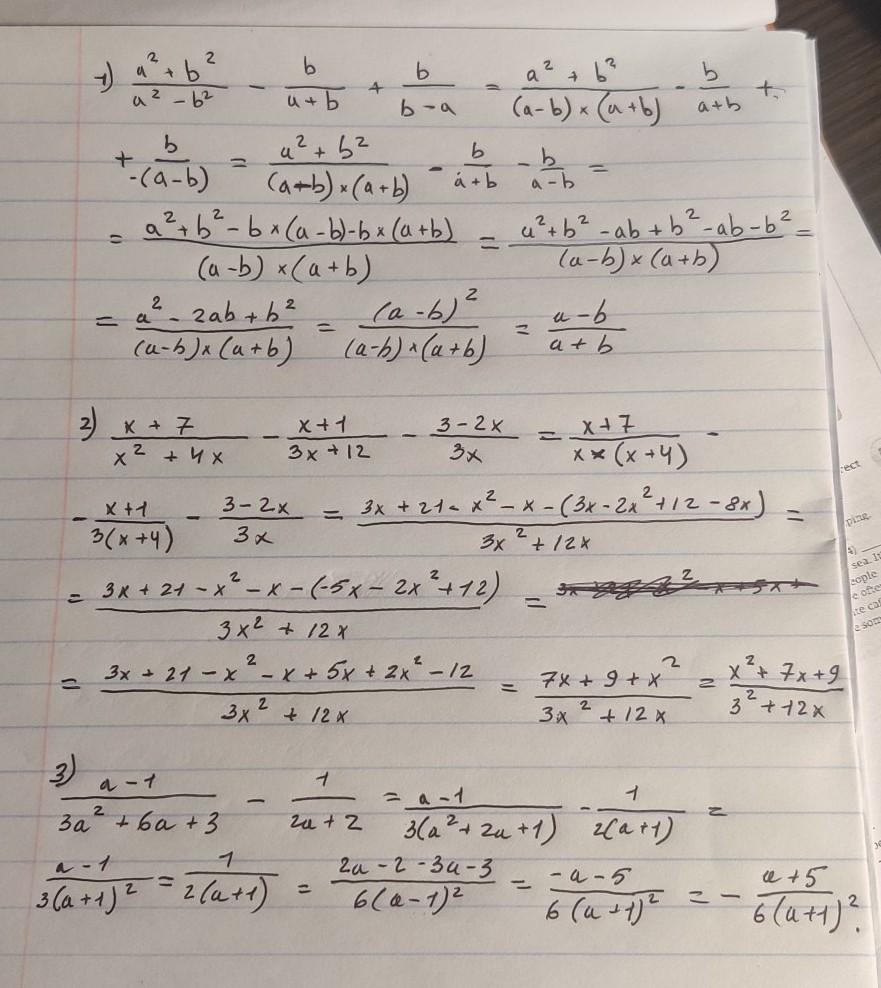 1) (a² + b²)/(a² - b²) - b/(a + b) + b/(b - a) = (a² + b²)/((a-b) × (a+b)) - b/(a+b) +
+ b/(-(a-b)) = (a² + b²)/((a-b) × (a+b)) - b/(a+b) - b/(a-b) =
= (a² + b² - b × (a-b) - b × (a+b))/((a-b) × (a+b)) = (a² + b² - ab + b² - ab - b²)/((a-b) × (a+b)) =
= (a² - 2ab + b²)/((a-b) × (a+b)) = (a-b)²/((a-b) × (a+b)) = (a-b)/(a+b)
2) (x + 7)/(x² + 4x) - (x+1)/(3x+12) - (3-2x)/3x = (x+7)/(x × (x+4)) -
- (x+1)/(3(x+4)) - (3-2x)/3x = (3x + 21 - x² - x - (3x - 2x² + 12 - 8x))/(3x² + 12x) =
= (3x + 21 - x² - x - (-5x - 2x² + 12))/(3x² + 12x) =
= (3x + 21 - x² - x + 5x + 2x² - 12)/(3x² + 12x) = (7x + 9 + x²)/(3x² + 12x) = (x² + 7x + 9)/(3² + 12x)
3) (a-1)/(3a² + 6a + 3) - 1/(2a + 2) = (a-1)/(3(a² + 2a + 1)) - 1/(2(a+1)) =
(a-1)/(3(a+1)²) = 1/(2(a+1)) = (2a - 2 - 3a - 3)/(6(a-1)²) = (-a-5)/(6(a+1)²) = - (a+5)/(6(a+1)²).